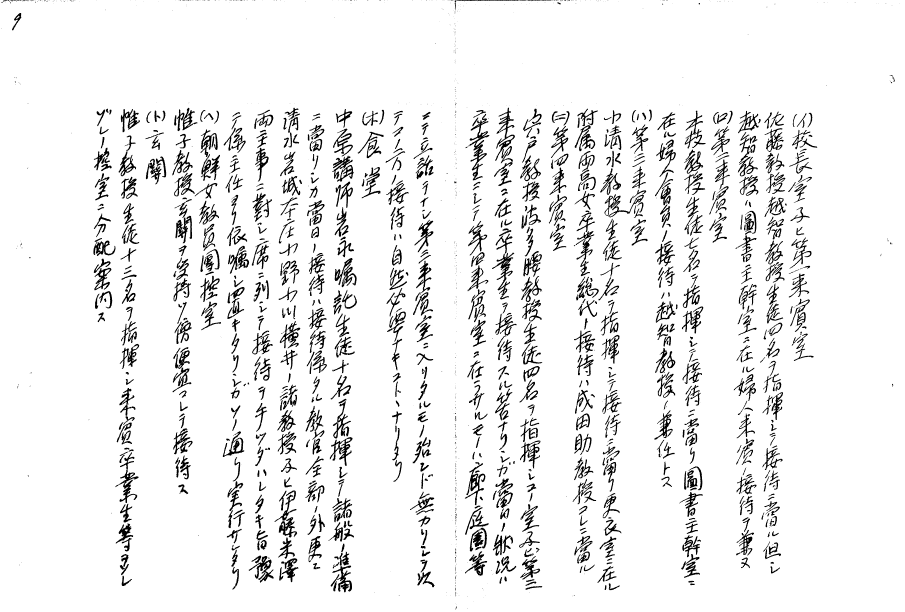 9
(イ)校長室及ヒ第一来賓室
佐藤教授越智教授生徒四名ヲ指揮シテ接待ニ當ル但シ
越智教授ハ圖書主幹室ニ在ル婦人来賓ノ接待ヲ兼ヌ
(ロ)第二来賓室
木枝教授生徒七名ヲ指揮シテ接待ニ當リ圖書主幹室ニ
在ル婦人會員ノ接待ハ越智教授ノ兼任トス
(ハ)第三来賓室
小清水教授生徒十名ヲ指揮シテ接待ニ當リ更衣室ニ在ル
附属両高女卒業生総代ノ接待ハ成田助教授コレニ當ル
(ニ)第四来賓室
宍戸教授波多腰教授生徒四名ヲ指揮シコノ室及ビ第三
来賓室ニ在ル卒業生ヲ接待スル筈ナリシガ當日ノ状況ハ
卒業生ニシテ第四来賓室ニ在ラザルモノハ廊下庭園等
ニテ立話ヲナシ第三来賓室ニ入リタルモノ殆ンド無カリシヲ以
テコノ方ノ接待ハ自然必要ナキコトヽナリタリ
(ホ)食堂
中原講師岩永嘱託生徒十名ヲ指揮シテ諸般ノ準備
ニ當リシカ當日ノ接待ハ接待係タル教官全部ノ外更ニ
清水岩城本庄小野小川横井ノ諸教授及ヒ伊藤米澤
両主事ニ對シ席ニ列シテ接待ヲ手ツダハレタキ旨豫
テ係主任ヨリ依嘱シ置キタリシガソノ通リ実行サレタリ
(ヘ)朝鮮女教員團控室
惟子教授玄関ヲ受持ツ傍便宜コレヲ接待ス
(ト)玄関
惟子教授生徒十三名ヲ指揮シ来賓卒業生等ヲソレ
ゾレノ控室ニ分配案内ス